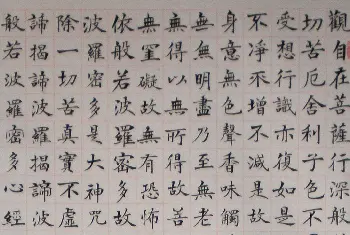 觀自在菩薩行深般
切苦厄舍利子色不
受想行識亦復如是
不淨不增不減是故
身意無色聲香味觸
無無明盡乃至無老
無得以無所得故菩
無罣礙故無有恐怖
依般若波羅密多故
波羅密多是大神咒
除一切苦真實不虛
諦揭諦波羅揭諦波
般若波羅密多心經